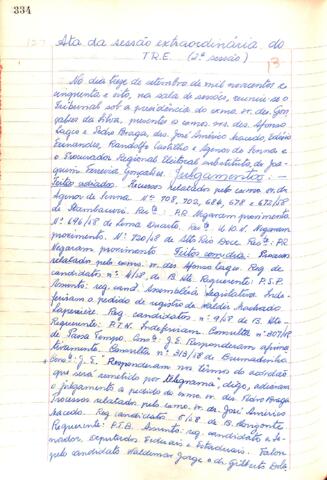 334
Ata da sessão extraordinária do
T.R.E. (2ª sessão)
No dia treze de setembro de mil novecentos e
cinquenta e oito, na sala de sessões, reuniu-se o
Tribunal sob a presidência do exmo. sr. des. Gon-
çalves da Silva, presentes o exmos. srs. des. Afonso
Lages e Pedro Braga, drs. José Américo Macedo, Edésio
Fernandes, Randolfo Castilho e Agenor de Senna e
o Procurador Regional Eleitoral substituto, dr. Joa-
quim Ferreira Gonçalves. Julgamentos: -
Feitos adiados. Recursos Relatados pelo exmo. sr. dr.
Agenor de Senna. Nº 708, 702, 686, 678 e 672/58
de Itambacuri. Rec.te: P.R. Negaram provimento.
Nº 696/58 de Lima Duarte. Rec.te U.D.N. Negaram
provimento. Nº 720/58 de Alto Rio Doce. Rec.te: P.R.
Negaram provimento. Feitos com dia: Processos
relatados pelo exmo. sr. des. Afonso Lages. Reg. de
candidatos nº 4/58 de B. Hte. Requerente: P.S.P.
Assunto: reg. cand. Assembléia Legislativa. Inde-
feriram o pedido de registro de Waldir Machado
Reg. candidatos nº 9/58 de B. Hte.
Requerente: P.T.N. Indeferiram. Consulta nº 307/58
de Passa Tempo. Cons.te: J.E. Responderam afirma-
tivamente. Consulta nº 313/58 de Brumadinho
Cons.te: J.E. Responderam nos termos do acórdão
que será remetido por telegrama, digo, adiaram
o julgamento a pedido do exmo. sr. des. Pedro Braga
Processos relatados pelo exmo. sr. dr. José Américo
Macedo. Reg. candidatos 5/58 de B. Horizonte
Requerente: P.T.B. Assunto: reg. candidatos a Se-
nador, deputados Federais e Estaduais. Falou
pelo candidato Waldomar Jorge o dr. Gilberto